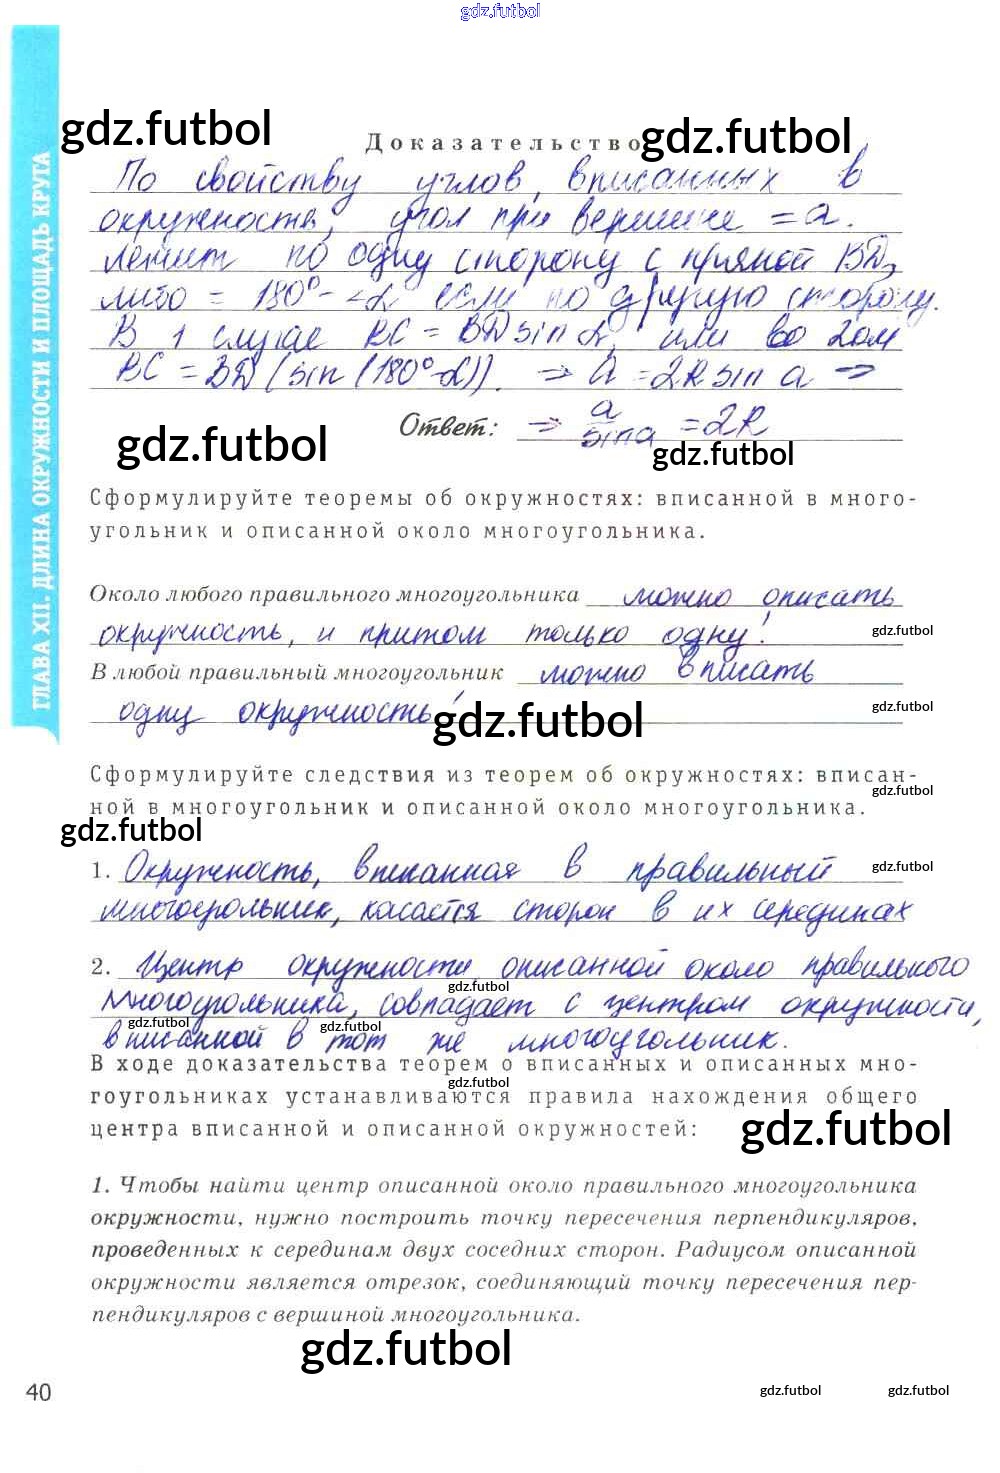 gdz.futbol
gdz.futbol
Доказательство
gdz.futbol
По свойству углов, вписанных в
окружность, угол при вершине = a.
лежит по одну сторону с прямой BD,
либо = 180° - ∠α если по другую сторону.
В 1 случае BC = BD sin α, или во 2ом
BC = BD (sin (180°-α)). => a = 2R sin a =>
Ответ: => a/sin a = 2R
gdz.futbol
gdz.futbol
Сформулируйте теоремы об окружностях: вписанной в много-
угольник и описанной около многоугольника.
Около любого правильного многоугольника можно описать
окружность, и притом только одну!
gdz.futbol
В любой правильный многоугольник можно вписать
одну окружность!
gdz.futbol
gdz.futbol
Сформулируйте следствия из теорем об окружностях: вписан-
gdz.futbol
ной в многоугольник и описанной около многоугольника.
gdz.futbol
1. Окружность, вписанная в правильный
gdz.futbol
многоугольник, касается сторон в их серединах
2. Центр окружности, описанной около правильного
gdz.futbol
многоугольника, совпадает с центром окружности,
gdz.futbol
gdz.futbol
вписанной в тот же многоугольник.
В ходе доказательства теорем о вписанных и описанных мно-
gdz.futbol
гоугольниках устанавливаются правила нахождения общего
центра вписанной и описанной окружностей:
gdz.futbol
1. Чтобы найти центр описанной около правильного многоугольника
окружности, нужно построить точку пересечения перпендикуляров,
проведенных к серединам двух соседних сторон. Радиусом описанной
окружности является отрезок, соединяющий точку пересечения пер-
пендикуляров с вершиной многоугольника.
gdz.futbol
40
gdz.futbol
gdz.futbol
ГЛАВА XII. ДЛИНА ОКРУЖНОСТИ И ПЛОЩАДЬ КРУГА